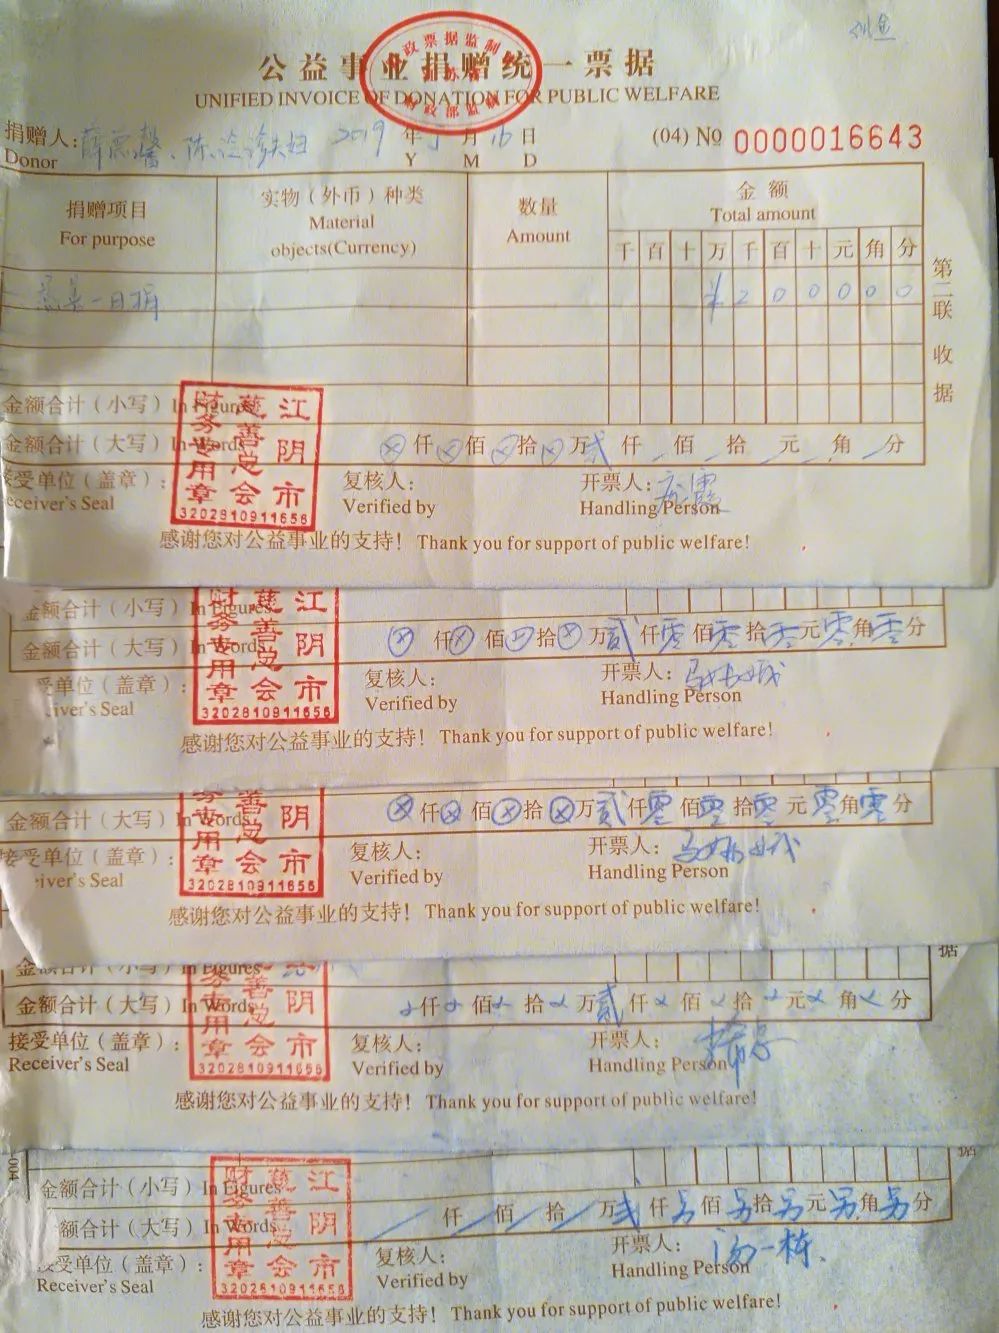 公益事业捐赠统一票据
UNIFIED INVOICE OF DONATION FOR PUBLIC WELFARE
捐赠人： 2019 年 月 16 日 (04) № 0000016643
Donor Y M D
捐赠项目 实物（外币）种类 数量 金额
For purpose Material objects(Currency) Amount Total amount
千 百 十 万 千 百 十 元 角 分
一日捐 ¥ 2 0 0 0 0 0
第二联 收据
金额合计（小写）In Figures
金额合计（大写）In Words ⊗ 仟 ⊗ 佰 ⊗ 拾 ⊗ 万 贰 仟 佰 拾 元 角 分
接受单位（盖章）： 复核人： 开票人：
Receiver's Seal Verified by Handling Person
江阴市慈善总会财务专用章
3202810911656
感谢您对公益事业的支持！ Thank you for support of public welfare!
金额合计（小写）In Figures
金额合计（大写）In Words ⊗ 仟 ⊗ 佰 ⊗ 拾 ⊗ 万 贰 仟 零 佰 零 拾 零 元 零 角 零 分
受单位（盖章）： 复核人： 开票人：
iver's Seal Verified by Handling Person
江阴市慈善总会财务专用章
3202810911656
感谢您对公益事业的支持！ Thank you for support of public welfare!
金额合计（大写）In Words ⊗ 仟 ⊗ 佰 ⊗ 拾 ⊗ 万 贰 仟 零 佰 零 拾 零 元 零 角 零 分
接受单位（盖章）： 复核人： 开票人：
iver's Seal Verified by Handling Person
阴市善总会务专用章
3202810911656
感谢您对公益事业的支持！ Thank you for support of public welfare!
金额合计（小写）In Figures 据
金额合计（大写）In Words 仟 佰 拾 万 贰 仟 佰 拾 元 角 分
接受单位（盖章）： 复核人： 开票人：
Receiver's Seal Verified by Handling Person
阴市善总会务专用章
感谢您对公益事业的支持！ Thank you for support of public welfare!
004 据
金额合计（小写）In Figures
金额合计（大写）In Words 仟 佰 拾 万 贰 仟 另 佰 另 拾 另 元 另 角 另 分
接受单位（盖章）： 复核人： 开票人： 汤一栋
Receiver's Seal Verified by Handling Person
江阴市慈善总会财务专用章
3202810911656
感谢您对公益事业的支持！ Thank you for support of public welfare!